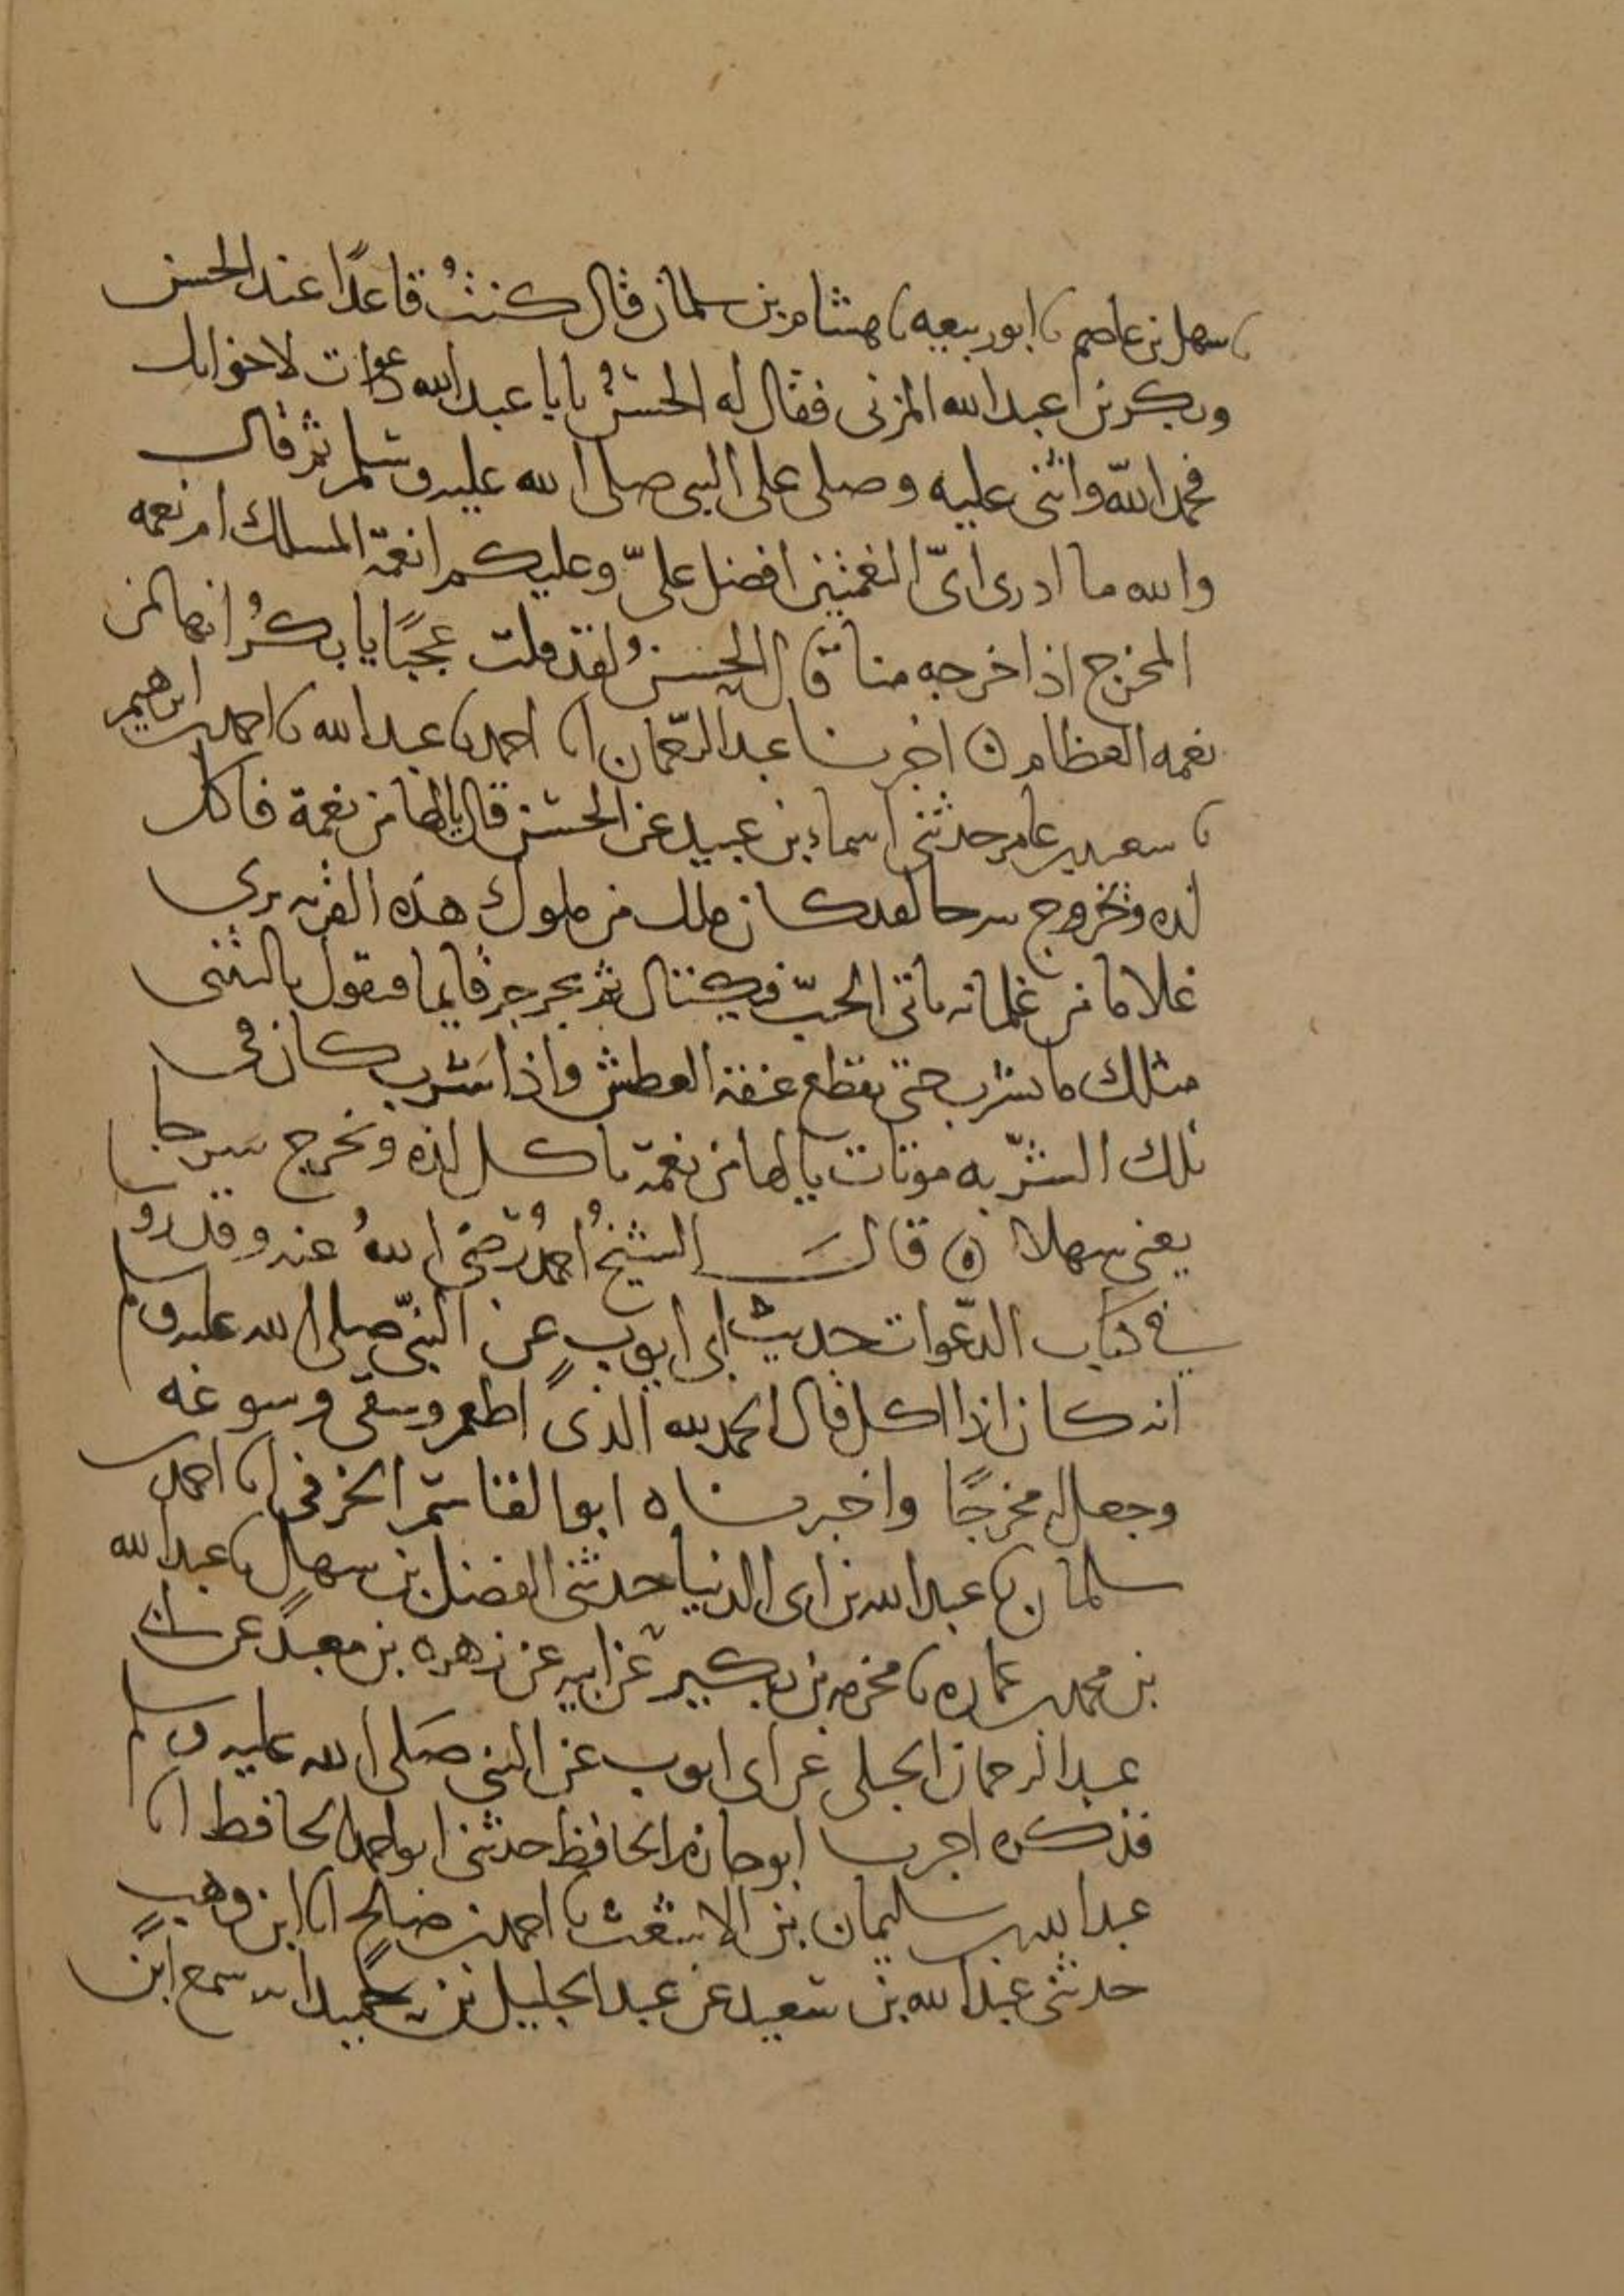 نا سهل بن عاصم نا ابو ربيعه نا هشام بن سلمان قال كنتُ قاعدًا عند الحسن
وبكر بن عبد الله المزنى فقال له الحسنُ يابا عبد الله دعوات لاخوانك
فحمد الله واثنى عليه وصلى على النبى صلى الله عليه وسلم ثم قال
والله ما ادرى اىّ النعمتين افضل علىّ وعليكم انعمة المسلك ام نعمه
المخرج اذا اخرجه منا قال الحسنُ لقد قلت عجبًا يا بكرُ انها لمن
نعمه العظام ۞ اخبرنا عبد الرحمان انا احمد نا عبد الله نا احمد بن ابرهيم
نا سعيد بن عامر حدثنى اسماء بن عبيد عن الحسن قال يالها من نعمة تاكل
لذه وتخروج سرحا لقد كان ملك من ملوك هذه القريه يرى
غلاما من غلمانه ياتى الحبّ فيكتال ثم يجرجر قايما فيقول يا ليتنى
مثلك ما يشرب حتى يقطع عنقه العطش واذا شرب كان فى
تلك الشربه موتات يالها من نعمة تاكل لذه وتخرج سرحا
يعنى سهلا ۞ قال الشيخُ احمدُ رضى اللهُ عنه وقد روينا
فى كتاب الدعوات حديث ابى ايوبٍ عن النبىّ صلى الله عليه وسلم
انه كان اذا اكل قال الحمد لله الذى اطعم وسقى وسوغه
وجعل له مخرجًا واخبرناه ابو القاسم الخرفى انا احمد بن
سلمان نا عبد الله بن ابى الدنيا حدثنى الفضل بن سهل نا عبد الله
بن محمد بن عماره نا مخرمه بن بكير عن ابيه عن زهره بن معبدٍ عن ابى
عبد الرحمان الحبلى عن ابى ايوب عن النبى صلى الله عليه وسلم
فذكره اخبرنا ابو حازم الحافظ حدثنى ابو احمد الحافظ انا
عبد الله بن سليمان بن الاشعث نا احمد بن صالحٍ انا ابن وهبٍ
حدثنى عبد الله بن سعيد عن عبد الجليل بن حميد انه سمع ابن